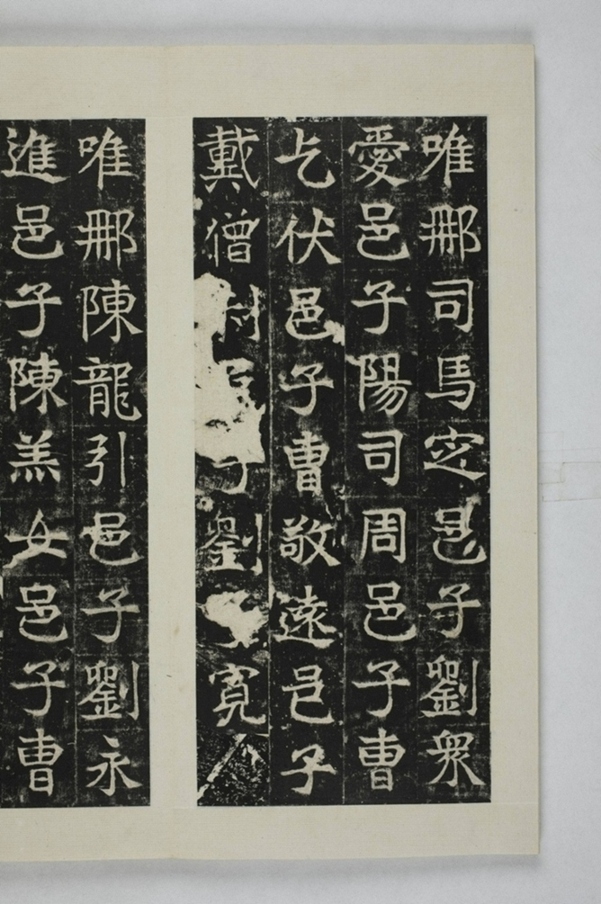 唯那司馬定邑子劉衆
愛邑子陽司周邑子曹
乞伏邑子曹敬遠邑子
戴僧子劉子寬
唯那陳龍引邑子劉永
進邑子陳羔女邑子曹